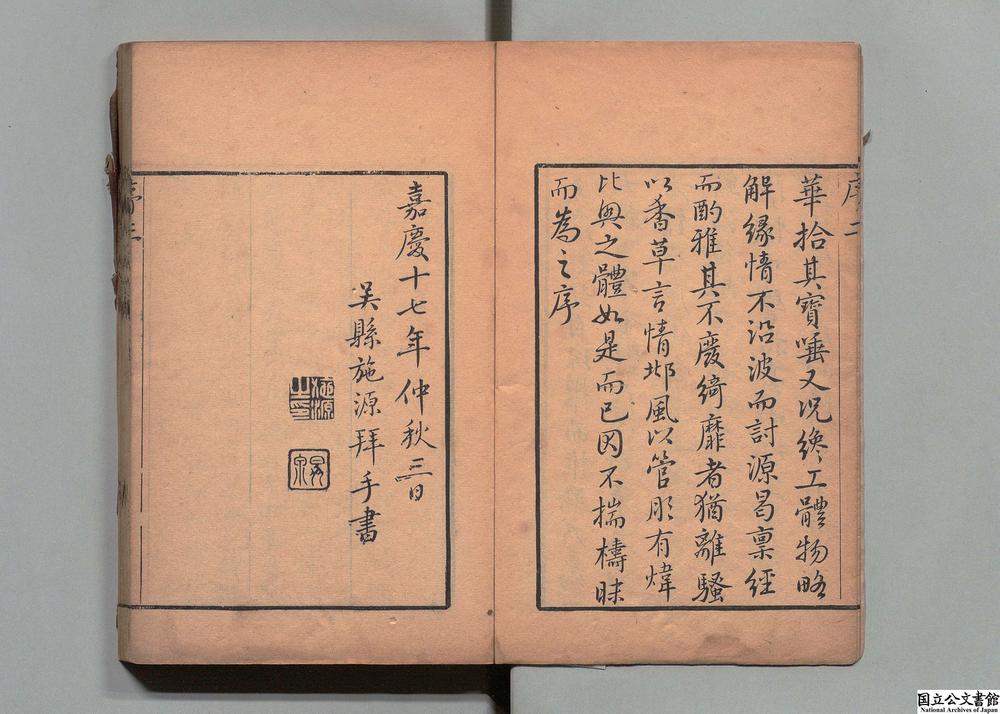 序二
華拾其寶唾又況終工體物略
解緣情不沿波而討源曷稟經
而酌雅其不廢綺靡者猶離騷
以香草言情邶風以管彤有煒
比興之體如是而已因不揣檮昧
而為之序
嘉慶十七年仲秋三日
吳縣施源拜手書
施源
之印
序三
国立公文書館
National Archives of Japan